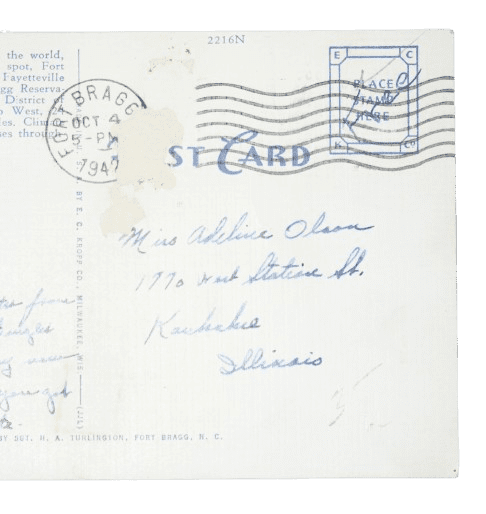 2216N
the world,
spot, Fort
Fayetteville
gg Reserva-
District of
West,
es. Clim
ses through
FORT BRAGG
OCT 4
5-PM
1942
E C
PLACE
STAMP
HERE
K Co
ST CARD
Miss Adeline Olson
1770 West Station St.
Kankakee
Illinois
from
now
you get
BY E. C. KROPP CO., MILWAUKEE, WIS. (2/L)
BY SGT. H. A. TURLINGTON, FORT BRAGG, N. C.